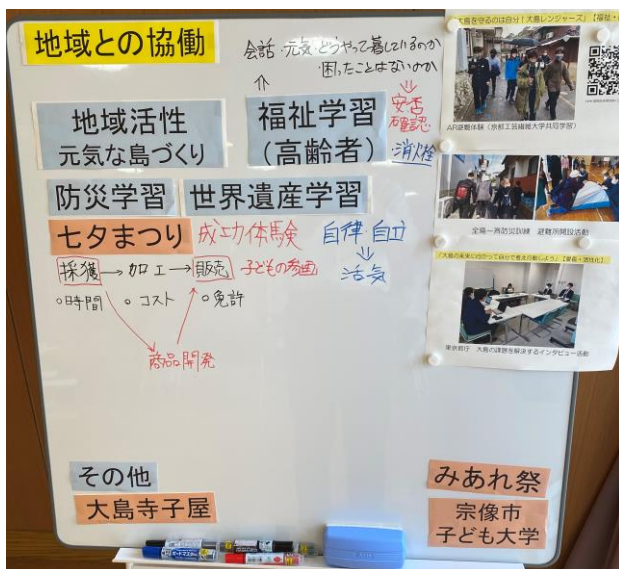 地域との協働
会話・元気・どうやって暮しているのか
・困ったことはないのか
地域活性
元気な島づくり
福祉学習
(高齢者)
安否
確認
・消火栓
防災学習
世界遺産学習
七夕まつり
成功体験
自律・自立
活気
採獲→加工→販売
子どもの参画
○時間 ○コスト ○免許
商品開発
その他
大島寺子屋
みあれ祭
宗像市
子ども大学
大島を守るのは自分!大島レンジャーズ」【福祉・
AR避難体験(京都工芸繊維大学共同学習)
全島一斉防災訓練 避難所開設活動
「大島の未来に向かって自分で考え行動しよう」【
東京都庁 大島の課題を解決するインタビュー活動